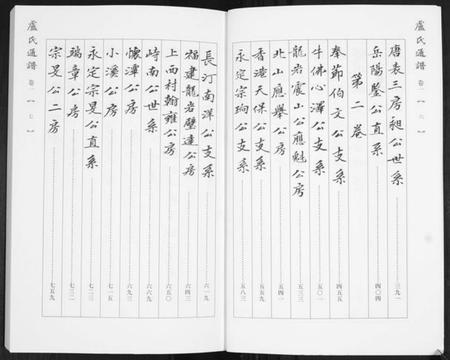 盧氏通譜 卷一 【六】
唐表三房昶公世系 三九一
岳陽鑒公直系 四〇四
第二卷
奉節伯文公支系 四五五
牛佛心澤公支系 五〇一
龍岩震山公應魁公房 五三三
北山應舉公房 五四一
香港天保公支系 五五九
永定宗珣公支系 五八三
長汀南洋公支系 六一九
福建龍岩璧達公房 六四三
上西村翰雍公房 六五〇
崎南公世系 六六九
懷澤公房 六九三
小溪公房 七一五
永定宗旻公直系 七二三
瑞章公房 七三二
宗旻公二房 七五九
盧氏通譜 卷一 【七】